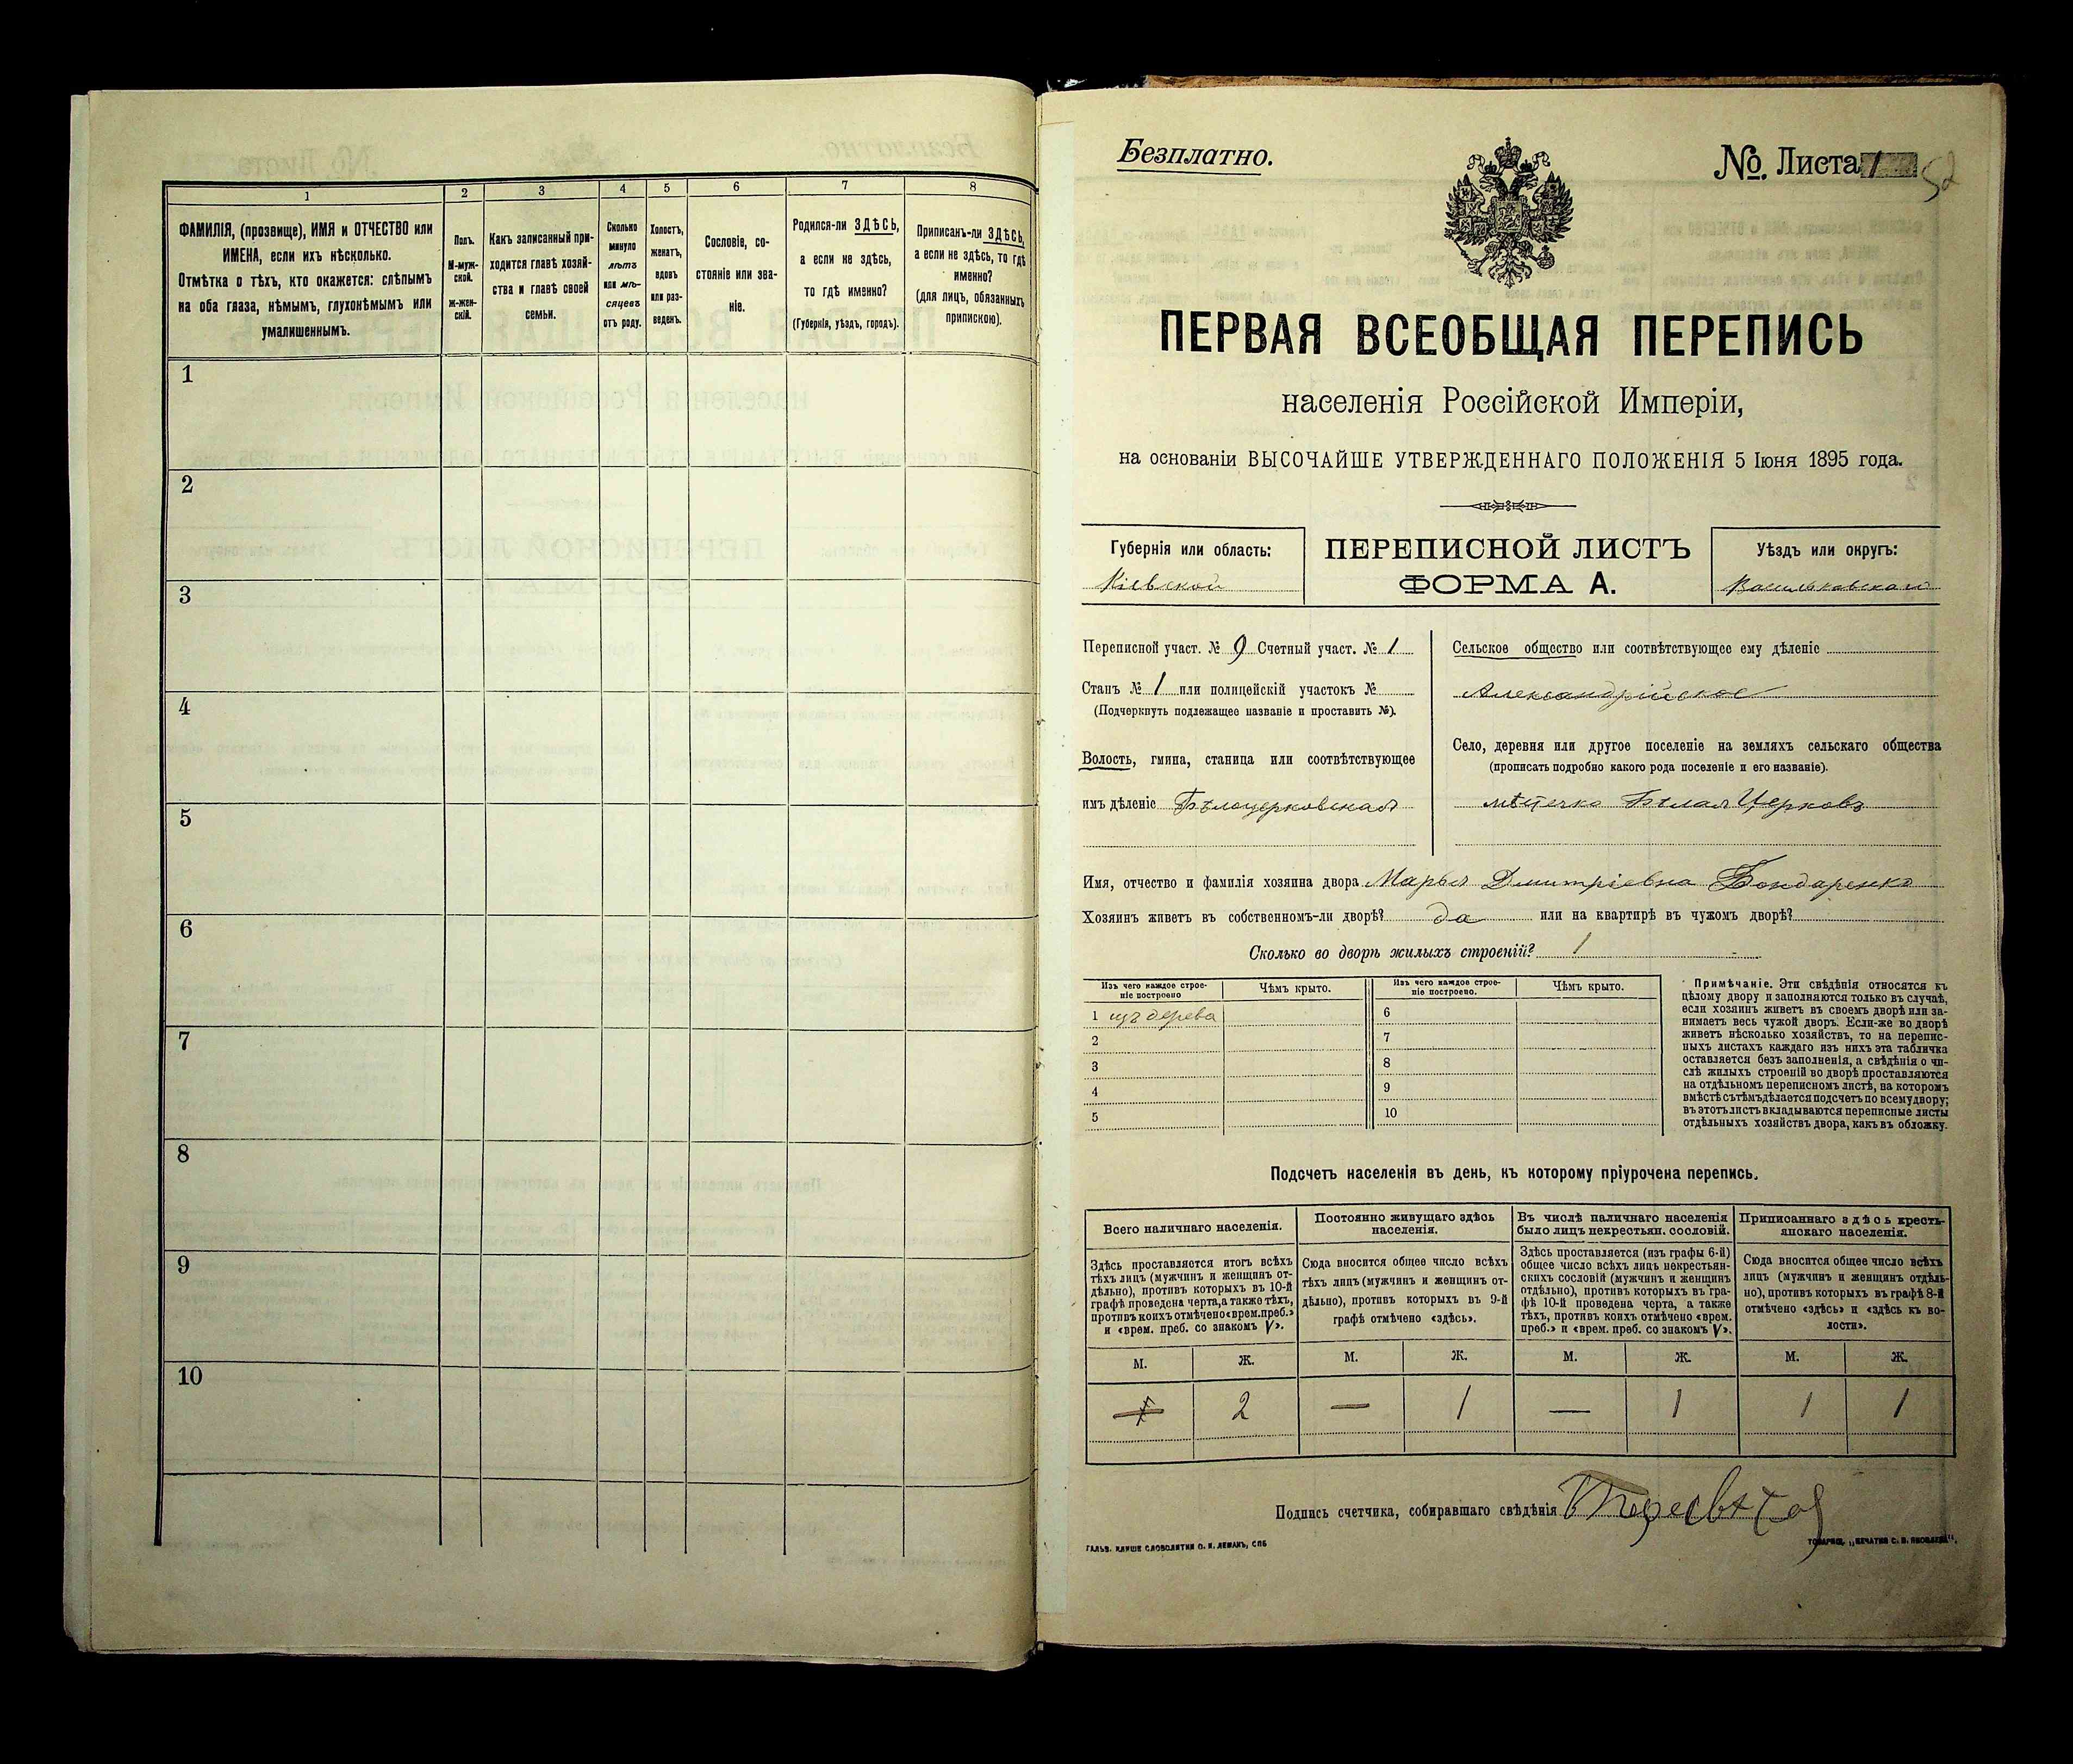 1
2
3
4
5
6
7
8
ФАМИЛІЯ, (прозвище), ИМЯ и ОТЧЕСТВО или
ИМЕНА, если ихъ нѣсколько.
Отмѣтка о тѣхъ, кто окажется: слѣпымъ
на оба глаза, нѣмымъ, глухонѣмымъ или
умалишеннымъ.
Полъ.
М-муж-
ской.
ж-жен-
скій.
Какъ записанный при-
ходится главѣ хозяй-
ства и главѣ своей
семьи.
Сколько
минуло
лѣтъ
или мѣ-
сяцевъ
отъ роду.
Холостъ,
женатъ,
вдовъ
или раз-
веденъ.
Сословіе, со-
стояніе или зва-
ніе.
Родился-ли ЗДѢСЬ,
а если не здѣсь,
то гдѣ именно?
(Губернія, уѣздъ, городъ).
Приписанъ-ли ЗДѢСЬ,
а если не здѣсь, то гдѣ
именно?
(для лицъ, обязанныхъ
припискою).
1
2
3
4
5
6
7
8
9
10
Безплатно.
№. Листа 1
52
ПЕРВАЯ ВСЕОБЩАЯ ПЕРЕПИСЬ
населенія Россійской Имперіи,
на основаніи ВЫСОЧАЙШЕ УТВЕРЖДЕННАГО ПОЛОЖЕНІЯ 5 Іюня 1895 года.
Губернія или область:
Кіевской
ПЕРЕПИСНОЙ ЛИСТЪ
ФОРМА А.
Уѣздъ или округъ:
Васильковскай
Переписной участ. № 9 Счетный участ. № 1
Станъ № 1 или полицейскій участокъ №
(Подчеркнуть подлежащее названіе и проставить №).
Волость, гмина, станица или соотвѣтствующее
имъ дѣленіе Бѣлоцерковская
Сельское общество или соотвѣтствующее ему дѣленіе
Александрійское
Село, деревня или другое поселеніе на земляхъ сельскаго общества
(прописать подробно какого рода поселеніе и его названіе).
мѣстечко Бѣлая Церковъ
Имя, отчество и фамилія хозяина двора Марья Дмитріевна Бондаренко
Хозяинъ живетъ въ собственномъ-ли дворѣ? да или на квартирѣ въ чужомъ дворѣ?
Сколько во дворѣ жилыхъ строеній? 1
Изъ чего каждое строе-
ніе построено
Чѣмъ крыто.
Изъ чего каждое строе-
ніе построено.
Чѣмъ крыто.
1 изъ дерева
2
3
4
5
6
7
8
9
10
Примѣчаніе. Эти свѣдѣнія относятся къ
цѣлому двору и заполняются только въ случаѣ,
если хозяинъ живетъ въ своемъ дворѣ или за-
нимаетъ весь чужой дворъ. Если-же во дворѣ
живетъ нѣсколько хозяйствъ, то на перепис-
ныхъ листахъ каждаго изъ нихъ эта табличка
оставляется безъ заполненія, а свѣдѣнія о чи-
слѣ жилыхъ строеній во дворѣ проставляются
на отдѣльномъ переписномъ листѣ, на которомъ
вмѣстѣ съ тѣмъ дѣлается подсчетъ по всему двору;
въ этотъ листъ вкладываются переписные листы
отдѣльныхъ хозяйствъ двора, какъ въ обложку.
Подсчетъ населенія въ день, къ которому пріурочена перепись.
Всего наличнаго населенія.
Постоянно живущаго здѣсь
населенія.
Въ числѣ наличнаго населенія
было лицъ некрестьян. сословій.
Приписаннаго здѣсь кресть-
янскаго населенія.
Здѣсь проставляется итогъ всѣхъ
тѣхъ лицъ (мужчинъ и женщинъ от-
дѣльно), противъ которыхъ въ 10-й
графѣ проведена черта, а также тѣхъ,
противъ коихъ отмѣчено «врем. преб.»
и «врем. преб. со знакомъ V».
Сюда вносится общее число всѣхъ
тѣхъ лицъ (мужчинъ и женщинъ от-
дѣльно), противъ которыхъ въ 9-й
графѣ отмѣчено «здѣсь».
Здѣсь проставляется (изъ графы 6-й)
общее число всѣхъ лицъ некрестьян-
скихъ сословій (мужчинъ и женщинъ
отдѣльно), противъ которыхъ въ гра-
фѣ 10-й проведена черта, а также
тѣхъ, противъ коихъ отмѣчено «врем.
преб.» и «врем. преб. со знакомъ V».
Сюда вносится общее число всѣхъ
лицъ (мужчинъ и женщинъ отдѣль-
но), противъ которыхъ въ графѣ 8-й
отмѣчено «здѣсь» и «здѣсь къ во-
лости».
М. Ж. М. Ж. М. Ж. М. Ж.
2 — 1 — 1 1 1
Подпись счетчика, собиравшаго свѣдѣнія
ГАЛЬВ. КЛИШЕ СЛОВОЛИТНИ О. И. ЛЕМАНЪ, СПБ
ТОВАРИЩ. „ПЕЧАТНЯ С. П. ЯКОВЛЕВА“.